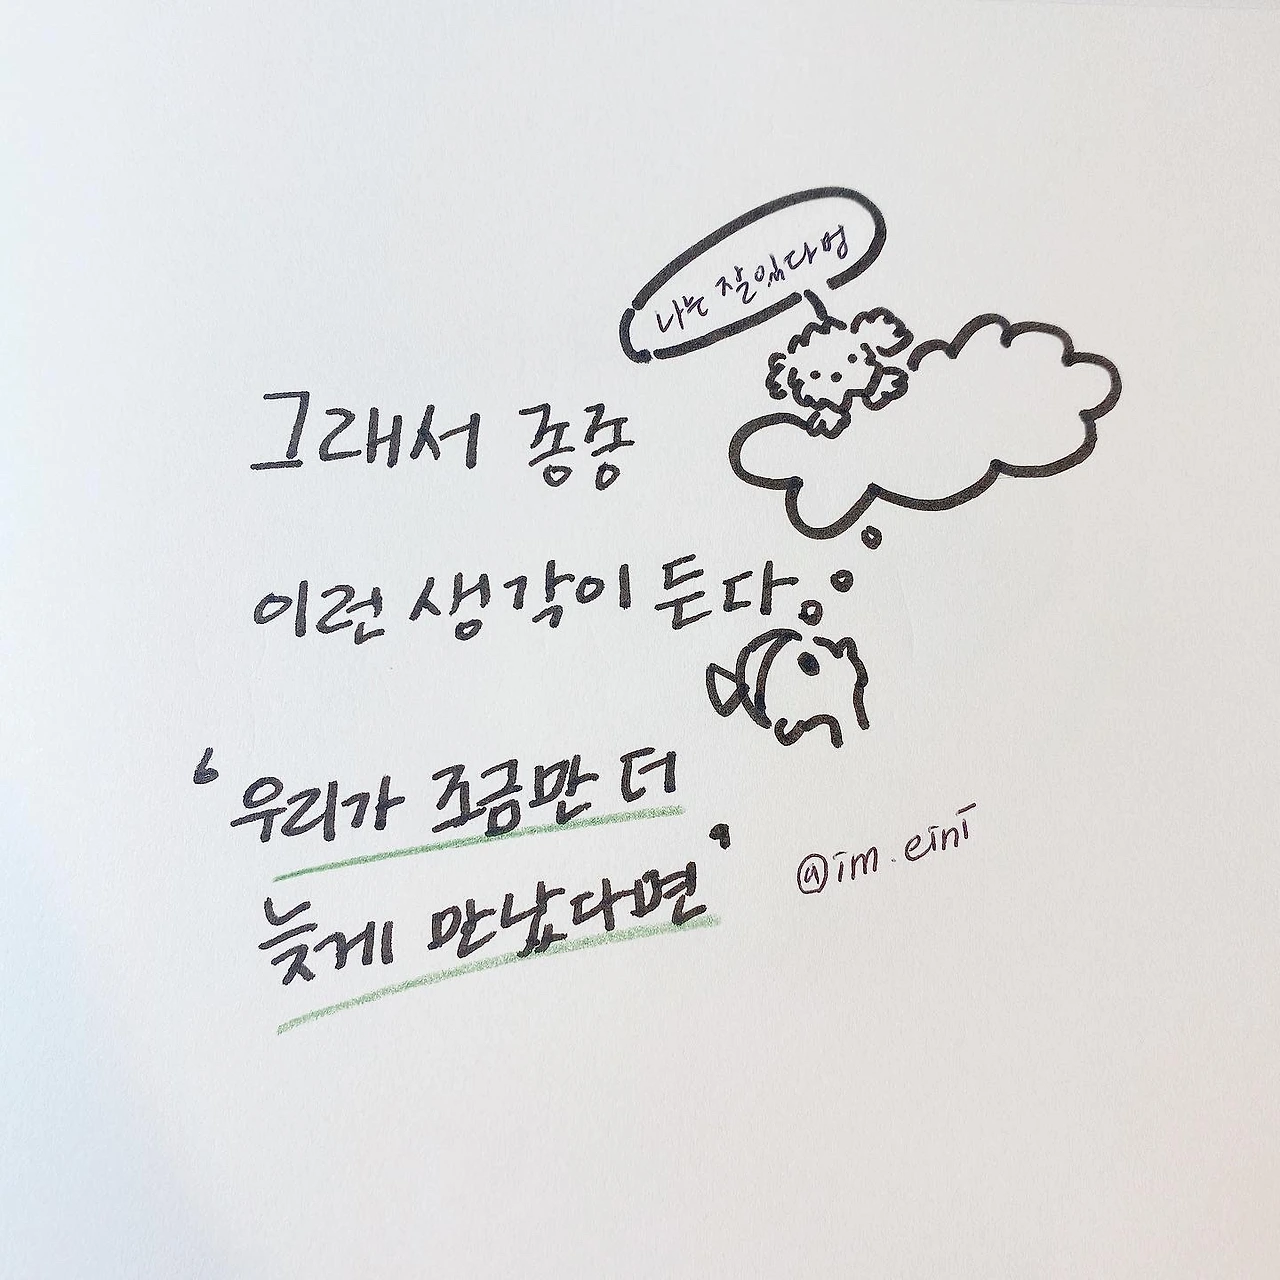 나는 잘있다멍
그래서 종종
이런 생각이 든다
'우리가 조금만 더
늦게 만났다면'
@im.eini